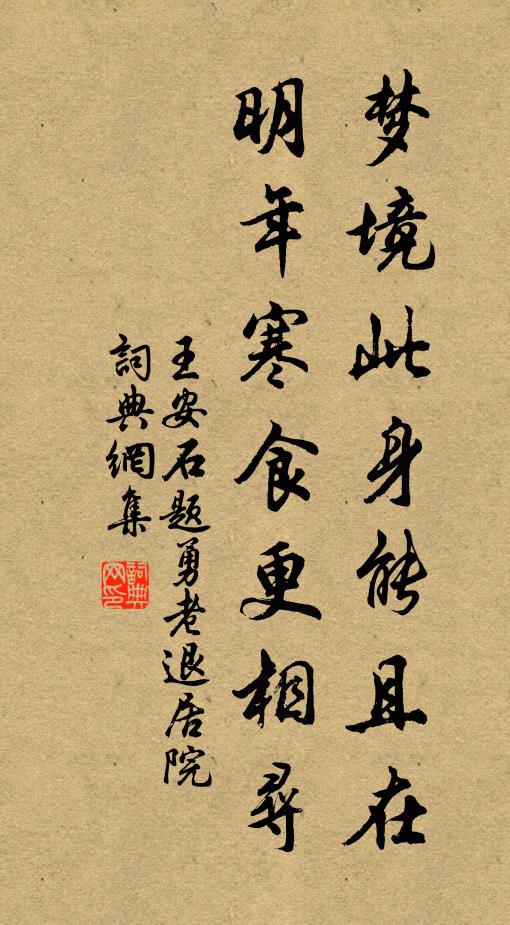 梦境此身能且在
明年寒食更相尋
王安石题勇老退居院
詞典網集
詞典网印